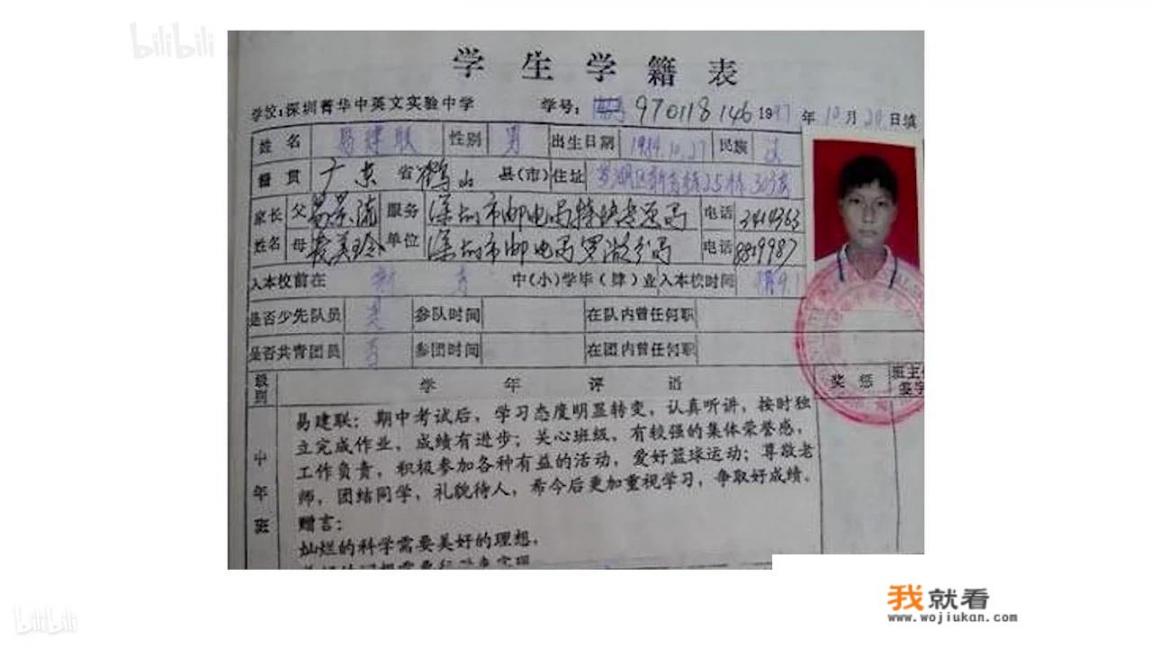 bilibili
学生学籍表
学校：深圳菁华中英文实验中学 学号： 970118146 1997年10月20日填
姓名 易建联 性别 男 出生日期 1984.10.27 民族 汉
籍贯 广东省鹤山县(市) 住址
家长 父 易景流 服务 电话 3414363
姓名 母 麦美玲 单位 电话
入本校前在 新秀 中(小)学毕(肄)业 入本校时间
是否少先队员 是 参队时间 在队内曾任何职
是否共青团员 否 参团时间 在团内曾任何职
奖惩 班主 签字
级别 学年评语
易建联：期中考试后，学习态度明显转变，认真听讲，按时独
立完成作业，成绩有进步；关心班级，有较强的集体荣誉感，
工作负责，积极参加各种有益的活动，爱好篮球运动；尊敬老
师，团结同学，礼貌待人，希今后更加重视学习，争取好成绩。
中年班
赠言：
灿烂的科学需要美好的理想，
bilibili
我就看
www.wojiukan.com